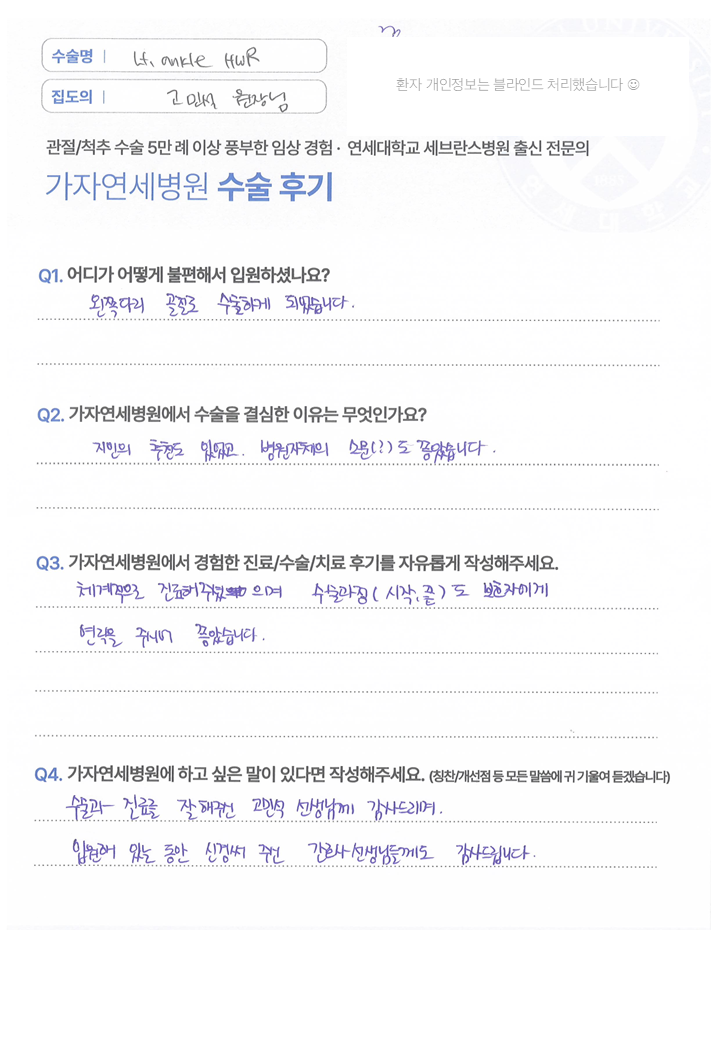 수술명 | Lt. ankle HWR
집도의 | 고민석 원장님
환자 개인정보는 블라인드 처리했습니다 ☺
관절/척추 수술 5만 례 이상 풍부한 임상 경험 · 연세대학교 세브란스병원 출신 전문의
가자연세병원 수술 후기
Q1. 어디가 어떻게 불편해서 입원하셨나요?
왼쪽다리 골절로 수술하게 되었습니다.
Q2. 가자연세병원에서 수술을 결심한 이유는 무엇인가요?
지인의 추천도 있었고. 병원자체의 소문(?)도 좋았습니다.
Q3. 가자연세병원에서 경험한 진료/수술/치료 후기를 자유롭게 작성해주세요.
체계적으로 진료해주셨으며 수술과정(시작,끝)도 보호자에게
연락을 주니 좋았습니다.
Q4. 가자연세병원에 하고 싶은 말이 있다면 작성해주세요. (칭찬/개선점 등 모든 말씀에 귀 기울여 듣겠습니다)
수술과 진료를 잘해주신 고민석 선생님께 감사드리며.
입원해 있는 동안 신경써 주신 간호사선생님들께도 감사드립니다.